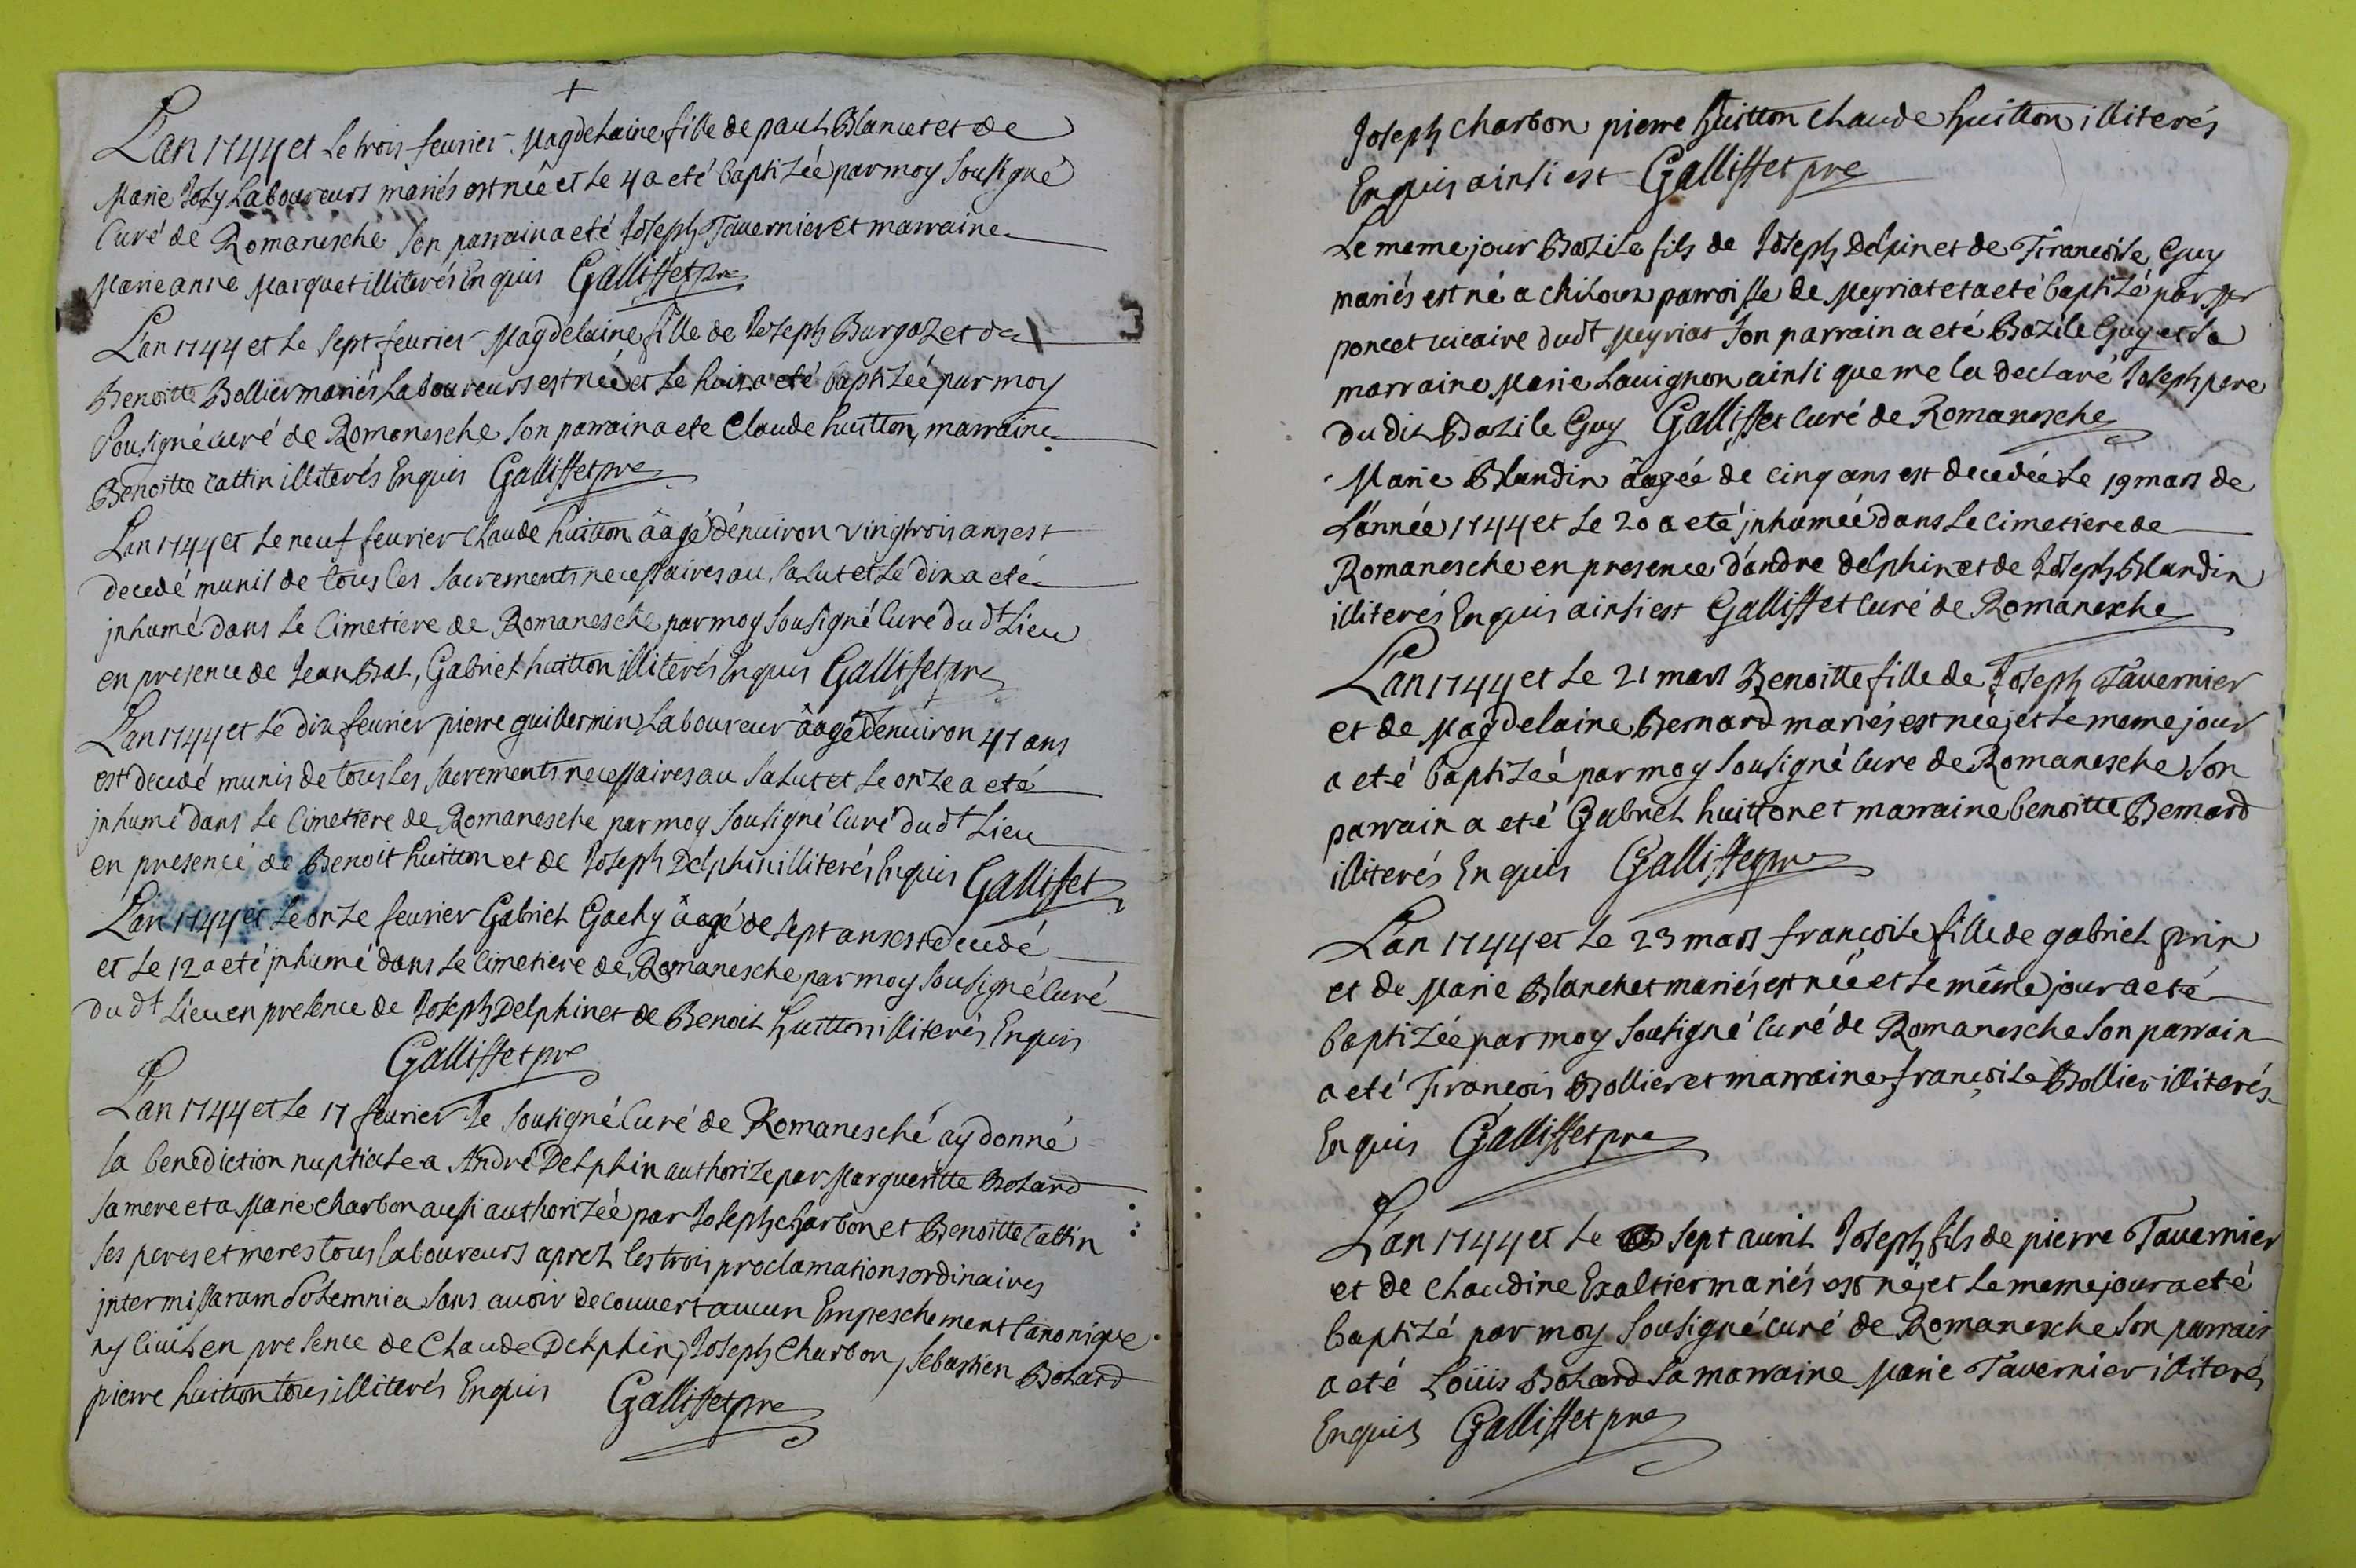 +
L'an 1744 et le trois feurier Magdelaine fille de paul Blancet et de
Marie Joly Laboureurs mariés est née et le 4 a eté baptizée par moy Sousigné
Curé de Romanesche son parrain a eté Joseph Tauernier et marraine
Marie anne Marquet illiterés Enquis Galliffet pre
L'an 1744 et le sept feurier Magdelaine fille de Joseph Burgoz et de
Benoitte Bollier mariés Laboureurs est née et le huit a eté baptizée par moy
Sousigné curé de Romanesche son parrain a ete Claude huitton, marraine
Benoitte Cattin illiterés Enquis Galliffet pre
L'an 1744 et le neuf feurier Claude huitton âagé d'énuiron vingtrois ans est
decedé munit de tous les sacrements necessaires au salut et le dix a eté
jnhumé dans le Cimetiere de Romanesche par moy Sousigné Curé dudt Lieu
en presence de Jean Bal, Gabriel huitton illiterés Enquis Galliffet pre
L'an 1744 et le dix feurier pierre guillermin Laboureur âagé d'enuiron 47 ans
est decedé munis de tous les sacrements necessaires au salut et le onze a eté
jnhumé dans le Cimetiere de Romanesche par moy Sousigné Curé dudt Lieu
en presence de Benoit huitton et de Joseph Delphin illiterés Enquis Galliffet
L'an 1744 et le onze feurier Gabriel Gachy âagé de sept ans est decedé
et le 12 a eté jnhumé dans le Cimetiere de Romanesche par moy Sousigné Curé
dudt Lieu en presence de Joseph Delphin et de Benoit huitton illiterés Enquis
Galliffet pre
L'an 1744 et le 17 feurier Je Sousigné Curé de Romanesché ay donné
la benediction nuptiale a André Delphin authorizé par Margueritte Bolard
sa mere et a Marie Charbon aussi authorizée par Joseph charbon et Benoitte Cattin
ses peres et meres tous laboureurs aprez les trois proclamations ordinaires
jnter missarum solemnia sans auoir decouuert aucun Empeschement Canonique
ny Ciuil en presence de Claude Delphin, Joseph Charbon, Sebastien Bolard
pierre huitton tous illiterés Enquis Galliffet pre
Joseph charbon pierre huitton Claude huitton illiterés
Enquis ainsi est Galliffet pre
Le meme jour Bazile fils de Joseph Delpin et de Francoise Guy
mariés est né a Chiloux parroisse de Meyriat et a eté baptizé par Mr
poncet uicaire dudt Meyriat son parrain a eté Bazile Guy et sa
marraine Marie Lauignon ainsi que me la declaré Joseph pere
du dit Bazile Guy Galliffet Curé de Romanesche
Marie Blandin âagée de cinq ans est decedée le 19 mars de
L'année 1744 et le 20 a eté jnhumée dans le cimetiere de
Romanesche en presence d'andre delphin et de Joseph Blandin
illiterés Enquis ainsi est Galliffet Curé de Romanesche
L'an 1744 et le 21 mars Benoitte fille de Joseph Tauernier
et de Magdelaine Bernard mariés est née, et le meme jour
a eté baptizée par moy Sousigné Cure de Romanesche son
parrain a eté Gabriel huitton et marraine benoitte Bernard
illiterés Enquis Galliffet pre
L'an 1744 et le 23 mars françoise fille de gabriel prin
et de Marie Blanchet mariés est née et le même jour a eté
baptizée par moy Sousigné Curé de Romanesche son parrain
a eté François Bollier et marraine françoise Bollier illiterés
Enquis Galliffet pre
L'an 1744 et le sept auril Joseph fils de pierre Tauernier
et de Claudine Exaltier mariés est né, et le meme jour a eté
baptizé par moy Sousigné curé de Romanesche son parrain
a eté Loüis Bolard sa marraine Marie Tauernier illiterés
Enquis Galliffet pre